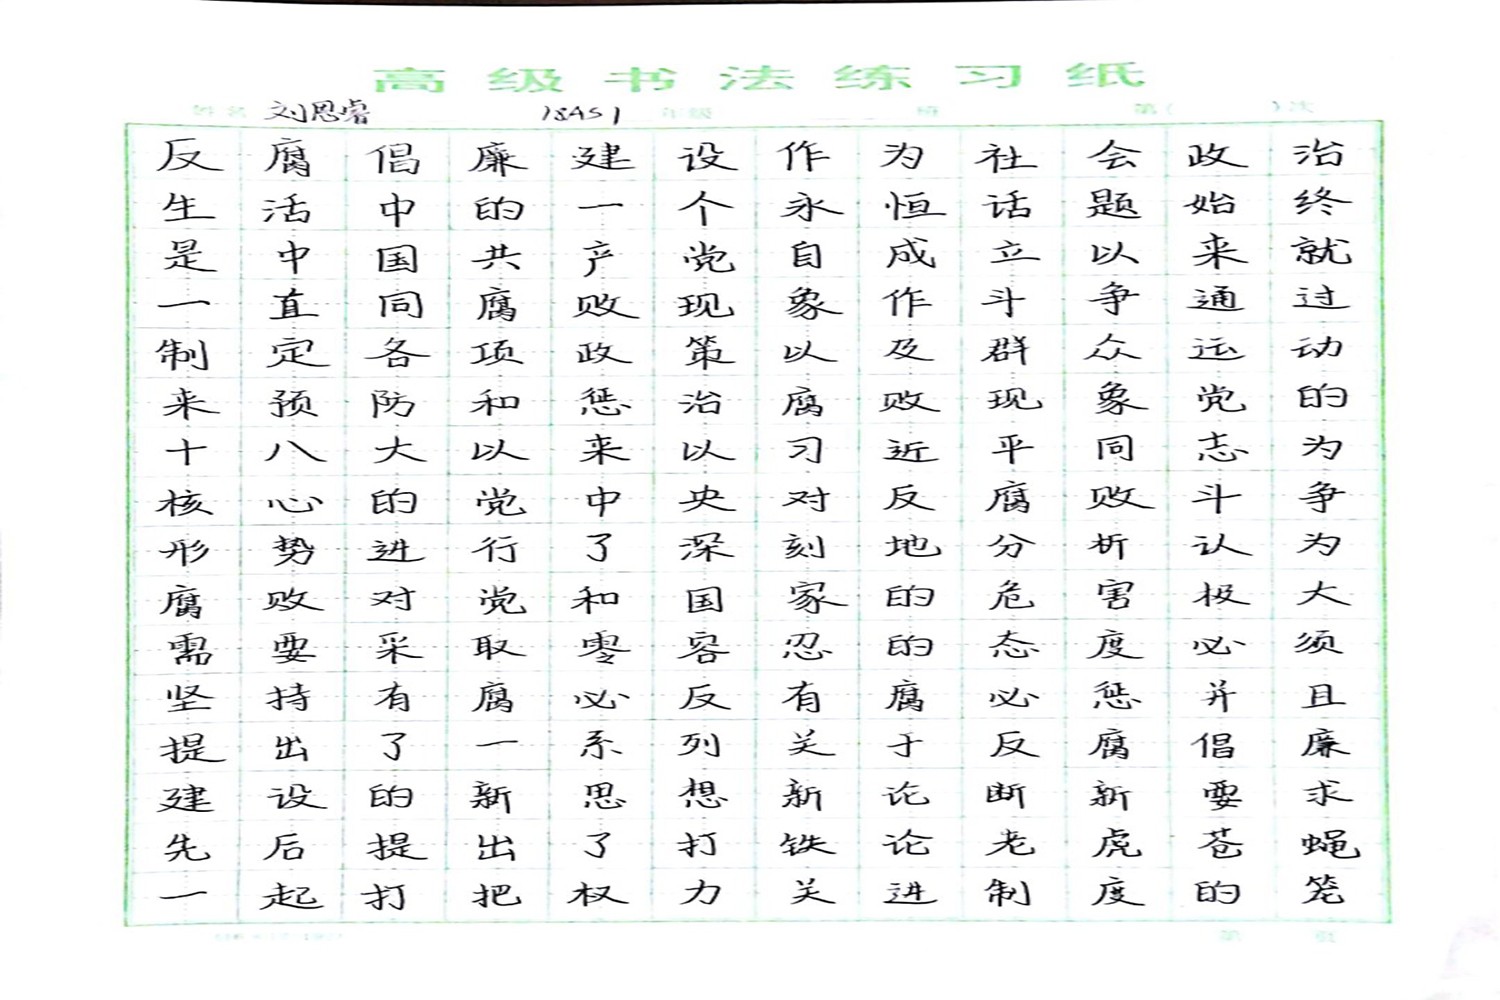 高级书法练习纸
姓名 刘恩睿 18AS1 年级 班 第( )次
反腐倡廉建设作为社会政治
生活中的一个永恒话题始终
是中国共产党自成立以来就
一直同腐败现象作斗争通过
制定各项政策以及群众运动
来预防和惩治腐败现象党的
十八大以来以习近平同志为
核心的党中央对反腐败斗争
形势进行了深刻地分析认为
腐败对党和国家的危害极大
需要采取零容忍的态度必须
坚持有腐必反有腐必惩并且
提出了一系列关于反腐倡廉
建设的新思想新论断新要求
先后提出了打铁论老虎苍蝇
一起打把权力关进制度的笼
第 张